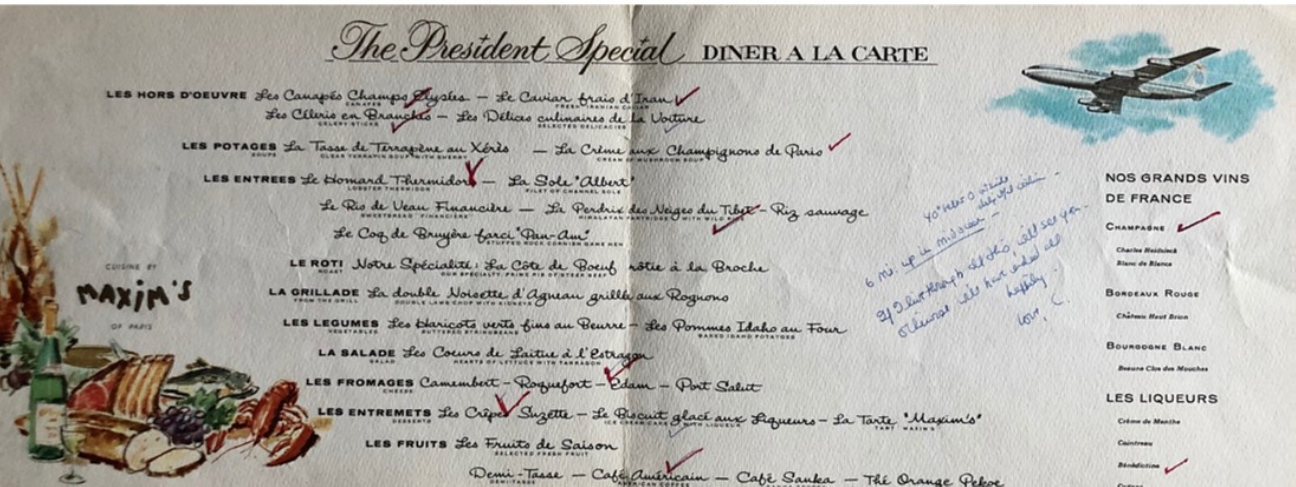 The President Special DINER A LA CARTE
LES HORS D'OEUVRE Les Canapés Champs Elysées — Le Caviar frais d'Iran
CANAPES FRESH IRANIAN CAVIAR
Les Céleris en Branches — Les Délices culinaires de la Voiture
CELERY STICKS SELECTED DELICACIES
LES POTAGES La Tasse de Terrapène au Xérès — La Crème aux Champignons de Paris
SOUPS CLEAR TERRAPIN SOUP WITH SHERRY CREAM OF MUSHROOM SOUP
LES ENTREES Le Homard Thermidor — La Sole "Albert"
LOBSTER THERMIDOR FILET OF CHANNEL SOLE
Le Ris de Veau Financière — La Perdrix des Neiges du Tibet — Riz sauvage
SWEETBREAD "FINANCIERE" HIMALAYAN PARTRIDGE WITH WILD
Le Coq de Bruyère farci "Pan-Am"
STUFFED ROCK CORNISH GAME HEN
LE ROTI Notre Spécialité: La Côte de Boeuf rôtie à la Broche
ROAST OUR SPECIALTY: PRIME RIB OF STEER BEEF
LA GRILLADE La double Noisette d'Agneau grillée aux Rognons
FROM THE GRILL DOUBLE LAMB CHOP WITH KIDNEYS
LES LEGUMES Les Haricots verts fins au Beurre — Les Pommes Idaho au Four
VEGETABLES BUTTERED STRINGBEANS BAKED IDAHO POTATOES
LA SALADE Les Coeurs de Laitue à l'Estragon
SALAD HEARTS OF LETTUCE WITH TARRAGON
LES FROMAGES Camembert — Roquefort — Edam — Port Salut
CHEESE
LES ENTREMETS Les Crêpes Suzette — Le Biscuit glacé aux Liqueurs — La Tarte "Maxim's"
DESSERTS ICE CREAM CAKE WITH LIQUEUR TART MAXIM'S
LES FRUITS Les Fruits de Saison
SELECTED FRESH FRUIT
Demi-Tasse — Café Américain — Café Sanka — Thé Orange Pekoe
DEMI-TASSE AMERICAN COFFEE
CUISINE BY
MAXIM'S
OF PARIS
40° below 0 outside
6 mi. up in mid ocean —
If I live through all this will see you
otherwise will have
happily
Love, C.
NOS GRANDS VINS
DE FRANCE
CHAMPAGNE
Charles Heidsieck
Blanc de Blancs
BORDEAUX ROUGE
Château Haut Brion
BOURGOGNE BLANC
Beaune Clos des Mouches
LES LIQUEURS
Crème de Menthe
Cointreau
Bénédictine